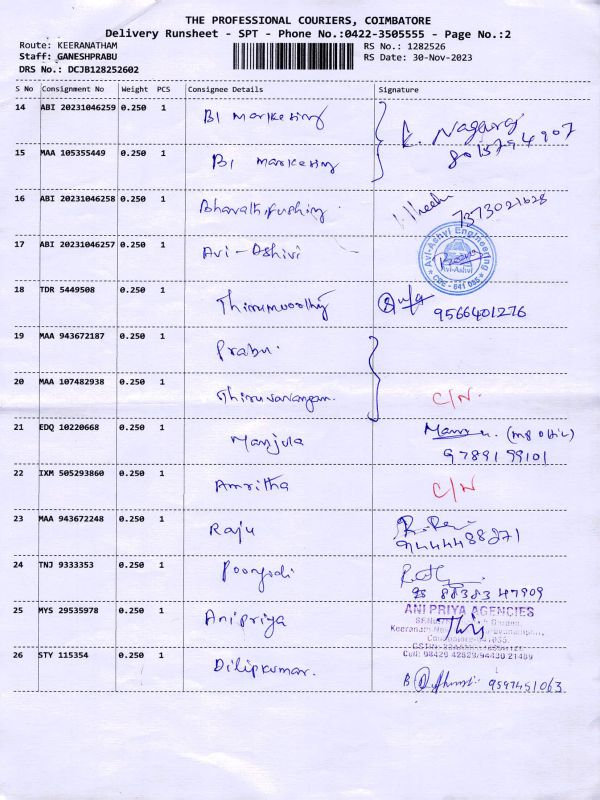 THE PROFESSIONAL COURIERS, COIMBATORE
Delivery Runsheet - SPT - Phone No.:0422-3505555 - Page No.:2
Route: KEERANATHAM RS No.: 1282526
Staff: GANESHPRABU RS Date: 30-Nov-2023
DRS No.: DCJB128252602
S No Consignment No Weight PCS Consignee Details Signature
14 ABI 20231046259 0.250 1 BI Marketing K. Nagaraj
15 MAA 105355449 0.250 1 BI Marketing
16 ABI 20231046258 0.250 1 Bharathi 7373021628
17 ABI 20231046257 0.250 1 Avi-Ashivi
Avi-Ashvi Engineering
Avi-Ashvi
18 TDR 5449508 0.250 1 Thirumoorthy 9566401276
19 MAA 943672187 0.250 1 Prabu.
20 MAA 107482938 0.250 1 C/N.
21 EDQ 10220668 0.250 1 Manjula
9789199101
22 IXM 505293860 0.250 1 Amritha C/N
23 MAA 943672248 0.250 1 Raju
9444488871
24 TNJ 9333353 0.250 1
88383 47909
25 MYS 29535978 0.250 1 Anipriya
ANI PRIYA AGENCIES
26 STY 115354 0.250 1 Dilipkumar. 9597451063